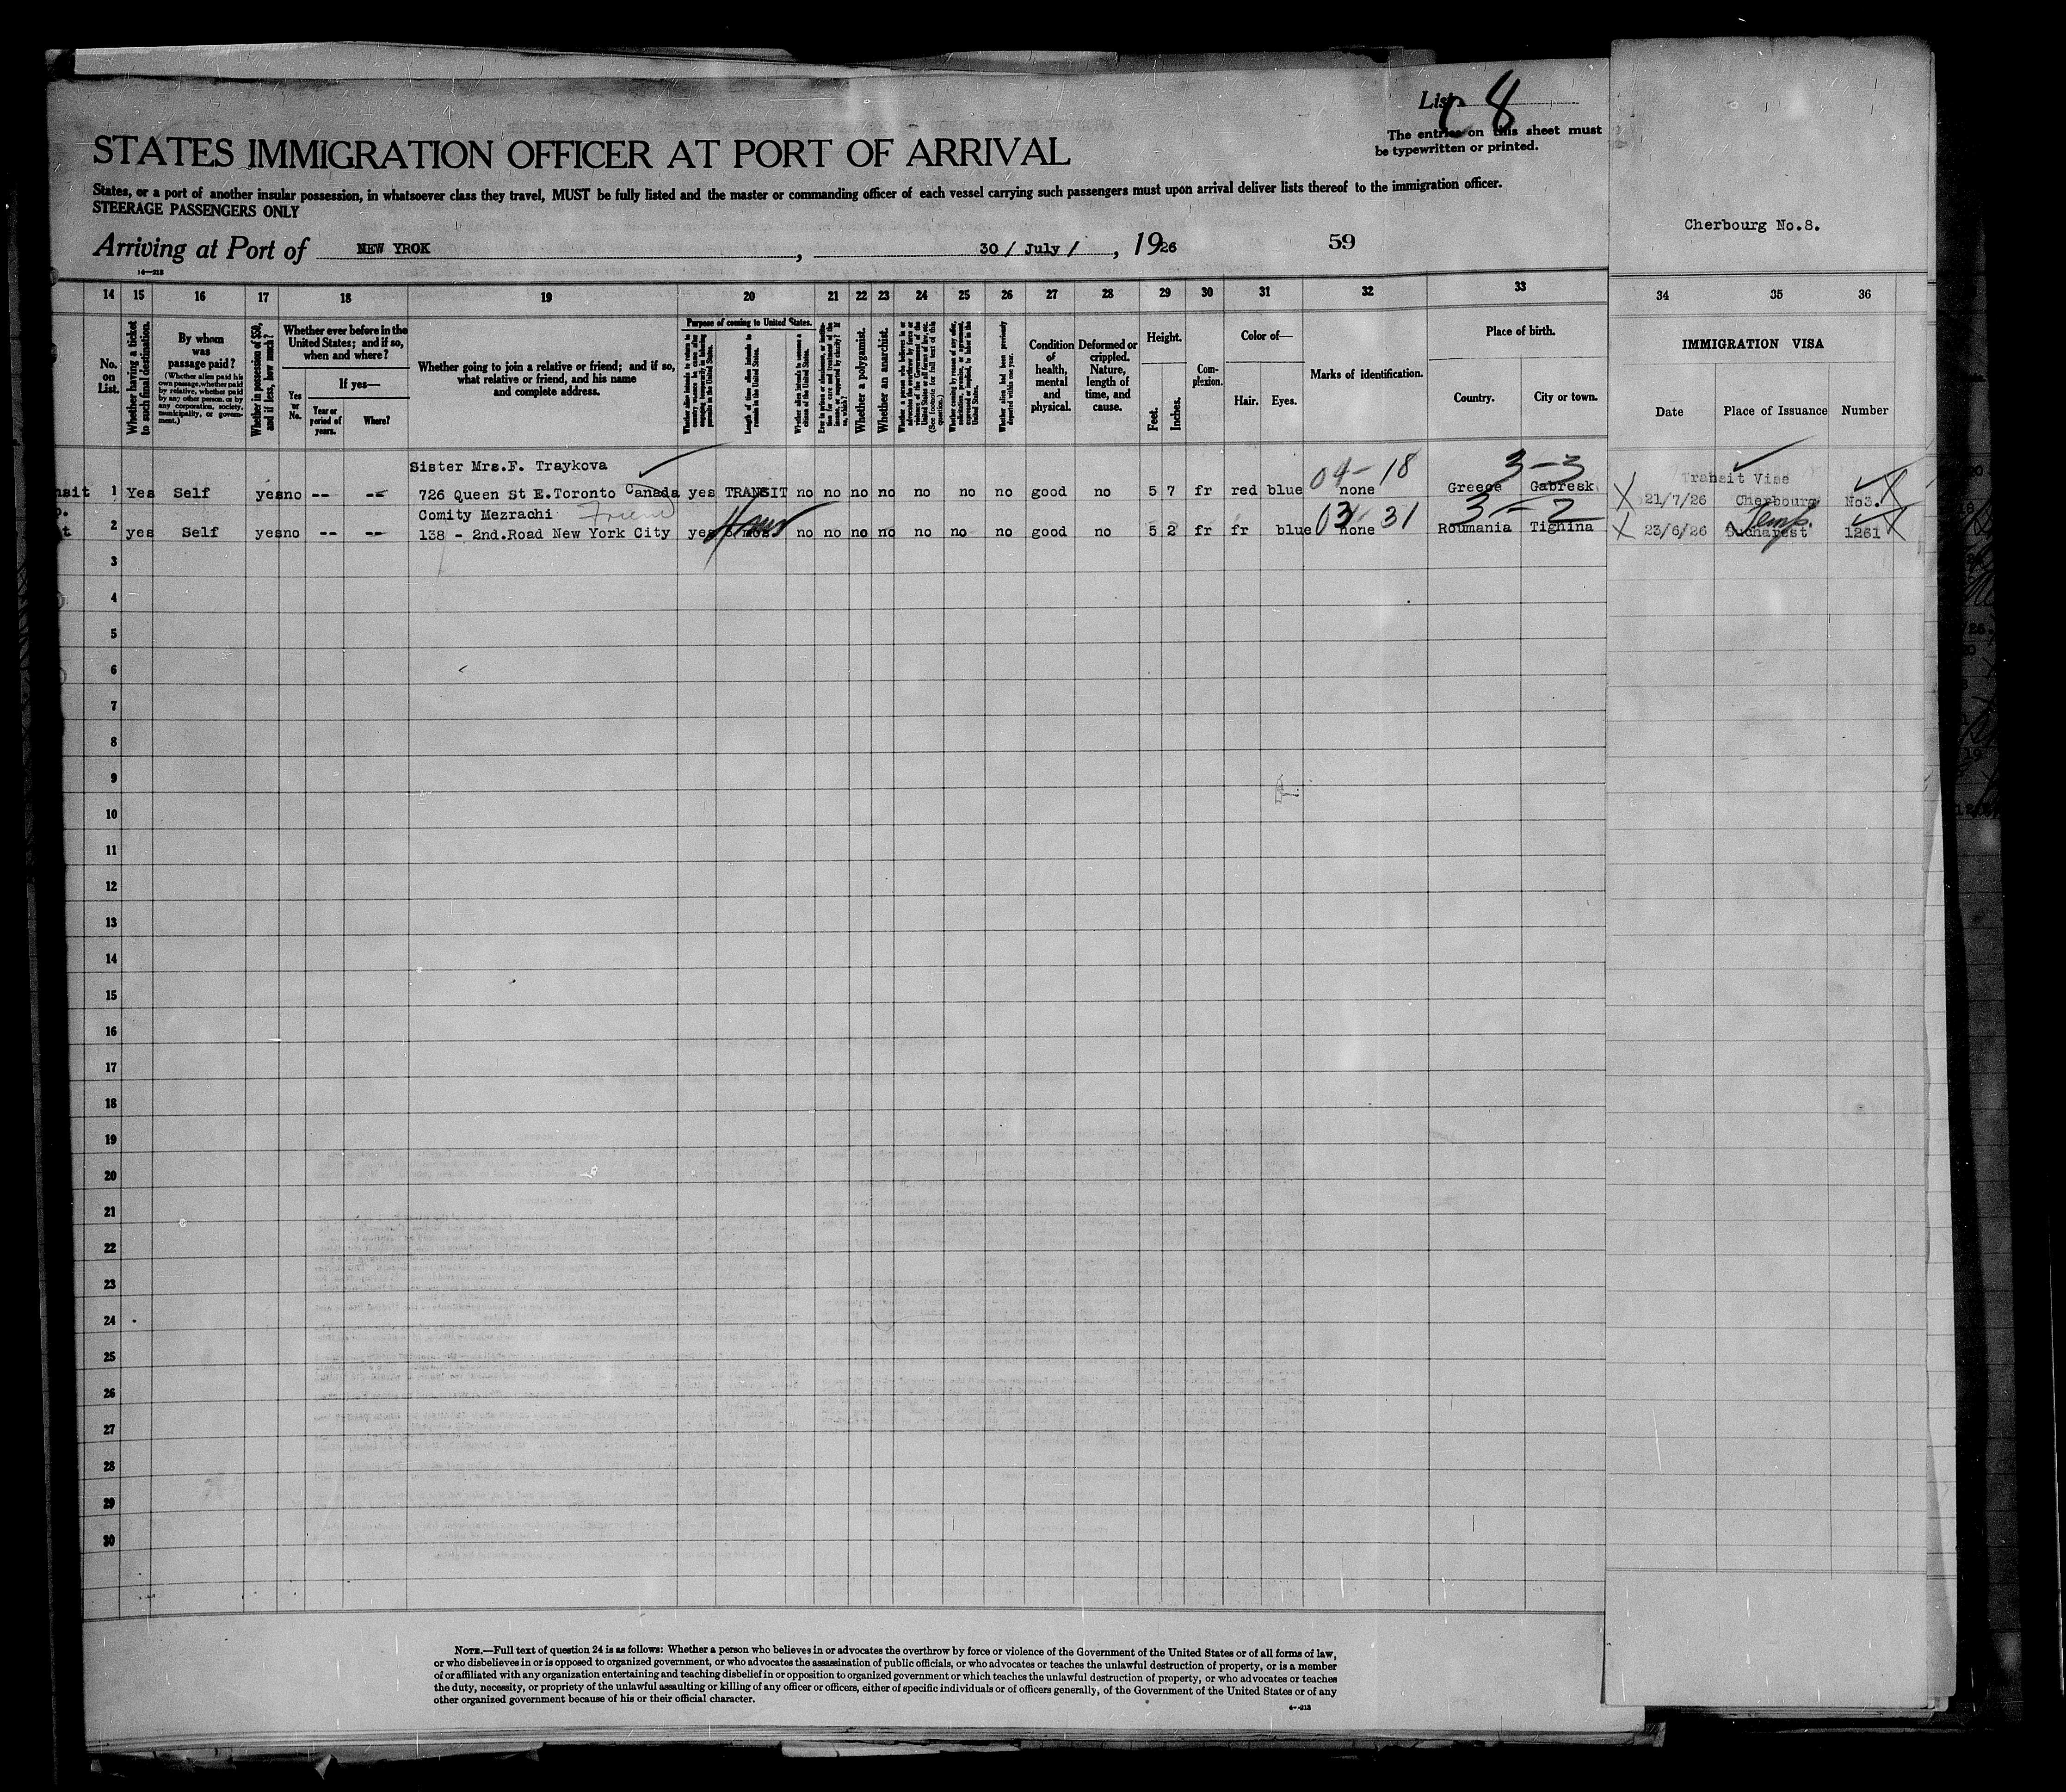 List C 8
The entries on this sheet must
be typewritten or printed.
STATES IMMIGRATION OFFICER AT PORT OF ARRIVAL
States, or a port of another insular possession, in whatsoever class they travel, MUST be fully listed and the master or commanding officer of each vessel carrying such passengers must upon arrival deliver lists thereof to the immigration officer.
STEERAGE PASSENGERS ONLY
Cherbourg No.8.
Arriving at Port of NEW YROK , 30 / July / , 1926 59
14 15 16 17 18 19 20 21 22 23 24 25 26 27 28 29 30 31 32 33 34 35 36
No. on List.
Whether having a ticket to such final destination.
By whom was passage paid?
(Whether alien paid his own passage, whether paid by relative, whether paid by any other person, or by any corporation, society, municipality, or government.)
Whether in possession of $50, and if less, how much?
Whether ever before in the United States; and if so, when and where?
Yes or No.
If yes—
Year or period of years.
Where?
Whether going to join a relative or friend; and if so, what relative or friend, and his name and complete address.
Purpose of coming to United States.
Length of time alien intends to remain in the United States.
Whether alien intends to become a citizen of the United States.
Whether a polygamist.
Whether an anarchist.
Whether alien had been previously deported within one year.
Condition of health, mental and physical.
Deformed or crippled. Nature, length of time, and cause.
Height.
Feet.
Inches.
Complexion.
Color of—
Hair.
Eyes.
Marks of identification.
Place of birth.
Country.
City or town.
IMMIGRATION VISA
Date
Place of Issuance
Number
Sister Mrs.F. Traykova 04-18 3-3 Transit Vise
nsit 1 Yes Self yes no -- -- 726 Queen St E.Toronto Canada yes TRANSIT no no no no no no no good no 5 7 fr red blue none Greece Gabresk 21/7/26 Cherbourg No3.
Comity Mezrachi Friend 31 3-2 Temp.
t 2 yes Self yes no -- -- 138 - 2nd.Road New York City yes no no no no no no no good no 5 2 fr fr blue none Roumania Tighina 23/6/26 Bucharest 1261
3
4
5
6
7
8
9
10
11
12
13
14
15
16
17
18
19
20
21
22
23
24
25
26
27
28
29
30
NOTE.—Full text of question 24 is as follows: Whether a person who believes in or advocates the overthrow by force or violence of the Government of the United States or of all forms of law,
or who disbelieves in or is opposed to organized government, or who advocates the assassination of public officials, or who advocates or teaches the unlawful destruction of property, or is a member
of or affiliated with any organization entertaining and teaching disbelief in or opposition to organized government or which teaches the unlawful destruction of property, or who advocates or teaches
the duty, necessity, or propriety of the unlawful assaulting or killing of any officer or officers, either of specific individuals or of officers generally, of the Government of the United States or of any
other organized government because of his or their official character.